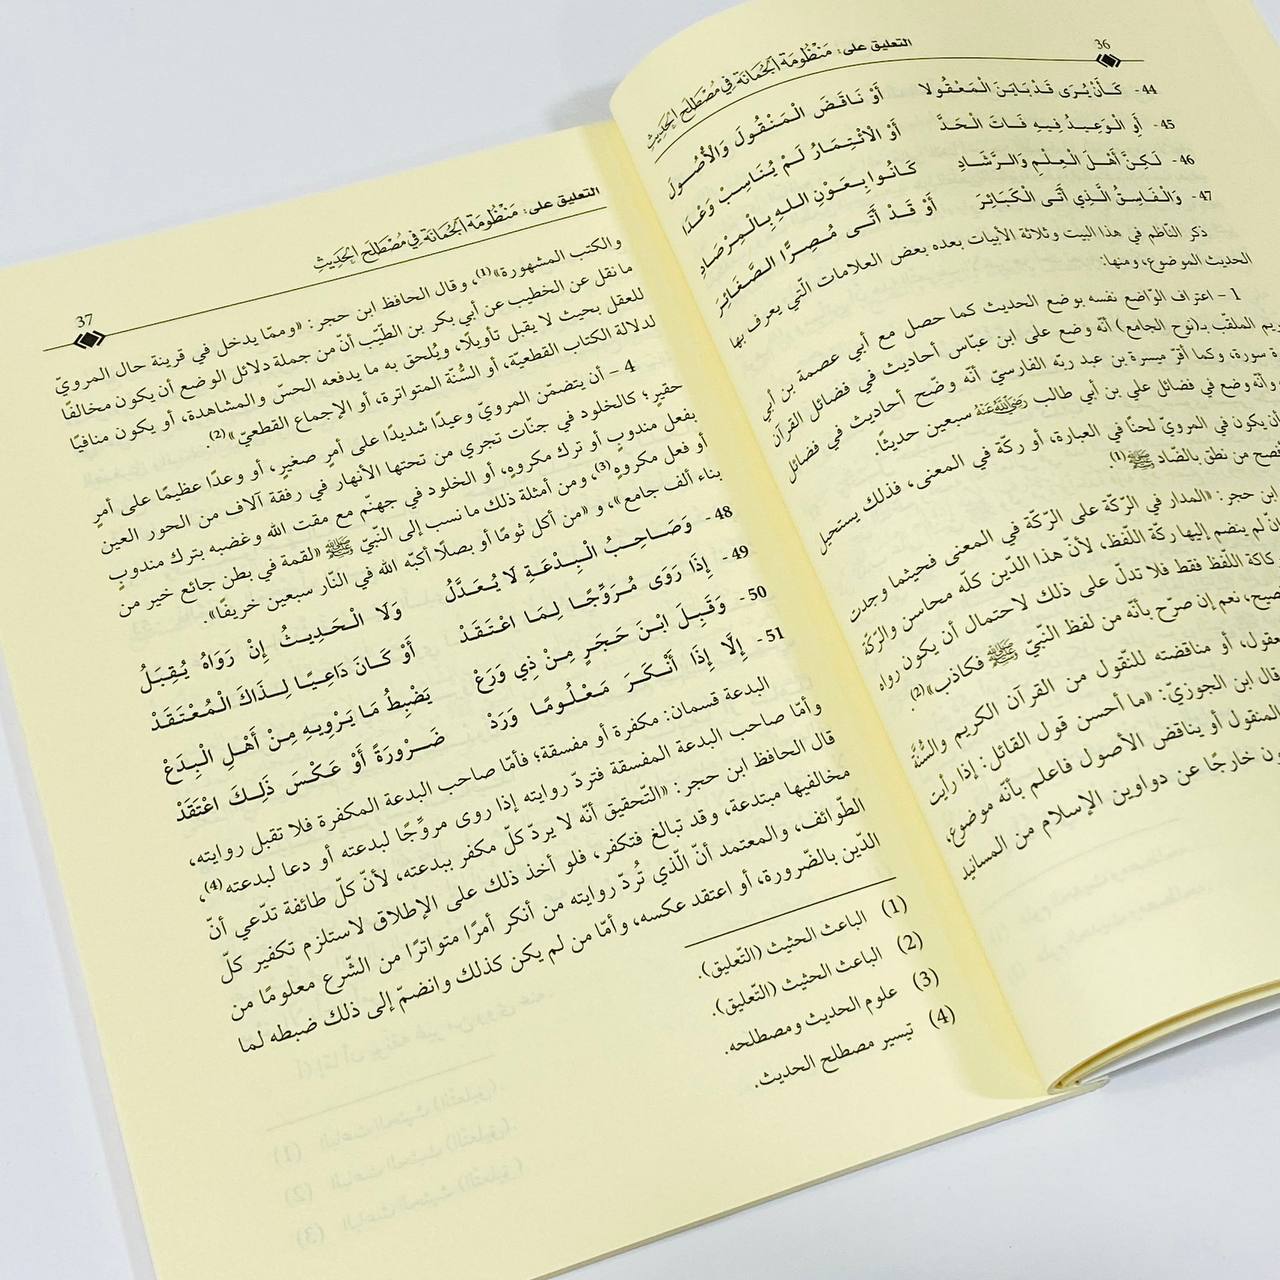 36
التعليق على: مَنْظُومَة الجُمَانَة فِي مُصْطَلَحِ الحَدِيثِ
44- كَأَنْ يُرَى قَدْ بَايَنَ الْمَعْقُولا أَوْ نَاقَضَ الْمَنْقُولَ وَالأُصُولَ
45- أَوِ الْوَعِيدُ فِيهِ فَاتَ الْحَدَّ أَوْ الِائْتِمَارُ لَمْ يُنَاسِبْ وَعْدَا
46- لَكِنَّ أَهْلَ الْعِلْمِ وَالرَّشَادِ كَانُوا بِعَوْنِ اللهِ بِالْمِرْصَادِ
47- وَالْفَاسِقُ الَّذِي أَتَى الْكَبَائِرَ أَوْ قَدْ أَتَى مُصِرًّا الصَّغَائِرَ
ذكر النّاظم في هذا البيت وثلاثة الأبيات بعده بعض العلامات الّتي يعرف بها
الحديث الموضوع، ومنها:
1 – اعتراف الوّاضع نفسه بوضع الحديث كما حصل مع أبي عصمة بن أبي
الملقّب بـ(نوح الجامع) أنّه وضع على ابن عبّاس أحاديث في فضائل القرآن
سورة، وكما أقرّ ميسرة بن عبد ربّه الفارسيّ أنّه وضّح أحاديث في فضائل
وأنّه وضع في فضائل علي بن أبي طالب رَضِيَ اللهُ عَنْهُ سبعين حديثًا.
أن يكون في المرويّ لحنًا في العبارة، أو ركّة في المعنى، فذلك يستحيل
أفصح من نطق بالضّاد ﷺ(1).
ابن حجر: «المدار في الرّكّة على الرّكّة في المعنى فحيثما وجدت
لم ينضم إليها ركة اللّفظ، لأنّ هذا الدّين كلّه محاسن والرّكّة
ركاكة اللّفظ فقط فلا تدلّ على ذلك لاحتمال أن يكون رواه
نعم إن صرّح بأنّه من لفظ النّبيّ ﷺ فكاذب»(2).
أو مناقضته للنّقول من القرآن الكريم والسُّنَّة
قال ابن الجوزيّ: «ما أحسن قول القائل: إذا رأيت
المنقول أو يناقض الأصول فاعلم بأنّه موضوع،
خارجًا عن دواوين الإسلام من المسانيد
التعليق على: مَنْظُومَة الجُمَانَة فِي مُصْطَلَحِ الحَدِيثِ
37
والكتب المشهورة»(1)، وقال الحافظ ابن حجر: «وممّا يدخل في قرينة حال المرويّ
ما نقل عن الخطيب عن أبي بكر بن الطّيّب أنّ من جملة دلائل الوضع أن يكون مخالفًا
للعقل بحيث لا يقبل تأويلًا، ويُلحق به ما يدفعه الحسّ والمشاهدة، أو يكون منافيًا
لدلالة الكتاب القطعيّة، أو السُّنّة المتواترة، أو الإجماع القطعيّ»(2).
4 – أن يتضمّن المرويّ وعيدًا شديدًا على أمرٍ صغيرٍ، أو وعدًا عظيمًا على أمرٍ
حقيرٍ؛ كالخلود في جنّات تجري من تحتها الأنهار في رفقة آلاف من الحور العين
بفعل مندوبٍ أو ترك مكروهٍ، أو الخلود في جهنّم مع مقت الله وغضبه بترك مندوبٍ
أو فعل مكروهٍ(3)، ومن أمثلة ذلك ما نسب إلى النّبيّ ﷺ «لقمة في بطن جائع خير من
بناء ألف جامع»، و «من أكل ثومًا أو بصلًا أكبّه الله في النّار سبعين خريفًا».
48- وَصَاحِبُ الْبِدْعَةِ لَا يُعَدَّلُ وَلَا الْحَدِيثُ إِنْ رَوَاهُ يُقبَلُ
49- إِذَا رَوَى مُرَوِّجًا لِمَا اعْتَقَدْ أَوْ كَانَ دَاعِيًا لِذَاكَ الْمُعْتَقَدْ
50- وَقَبِلَ ابْنَ حَجَرٍ مِنْ ذِي وَرَعْ يَضْبِطُ مَا يَرْوِيهِ مِنْ أَهْلِ الْبِدَعْ
51- إِلَّا إِذَا أَنْكَرَ مَعْلُومًا وَرَدْ ضَرُورَةً أَوْ عَكْسَ ذَلِكَ اعْتَقَدْ
البدعة قسمان: مكفرة أو مفسقة؛ فأمّا صاحب البدعة المكفرة فلا تقبل روايته،
وأمّا صاحب البدعة المفسقة فتردّ روايته إذا روى مروجًا لبدعته أو دعا لبدعته(4)،
قال الحافظ ابن حجر: «التّحقيق أنّه لا يردّ كلّ مكفر ببدعته، لأنّ كلّ طائفة تدّعي أنّ
مخالفيها مبتدعة، وقد تبالغ فتكفر، فلو أخذ ذلك على الإطلاق لاستلزم تكفير كلّ
الطّوائف، والمعتمد أنّ الّذي تُردّ روايته من أنكر أمرًا متواترًا من الشّرع معلومًا من
الدّين بالضّرورة، أو اعتقد عكسه، وأمّا من لم يكن كذلك وانضمّ إلى ذلك ضبطه لما
(1) الباعث الحثيث (التّعليق).
(2) الباعث الحثيث (التّعليق).
(3) علوم الحديث ومصطلحه.
(4) تيسير مصطلح الحديث.